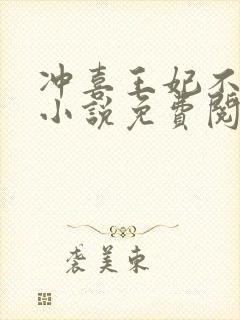 冲喜王妃不
小說免費閱
袭美東